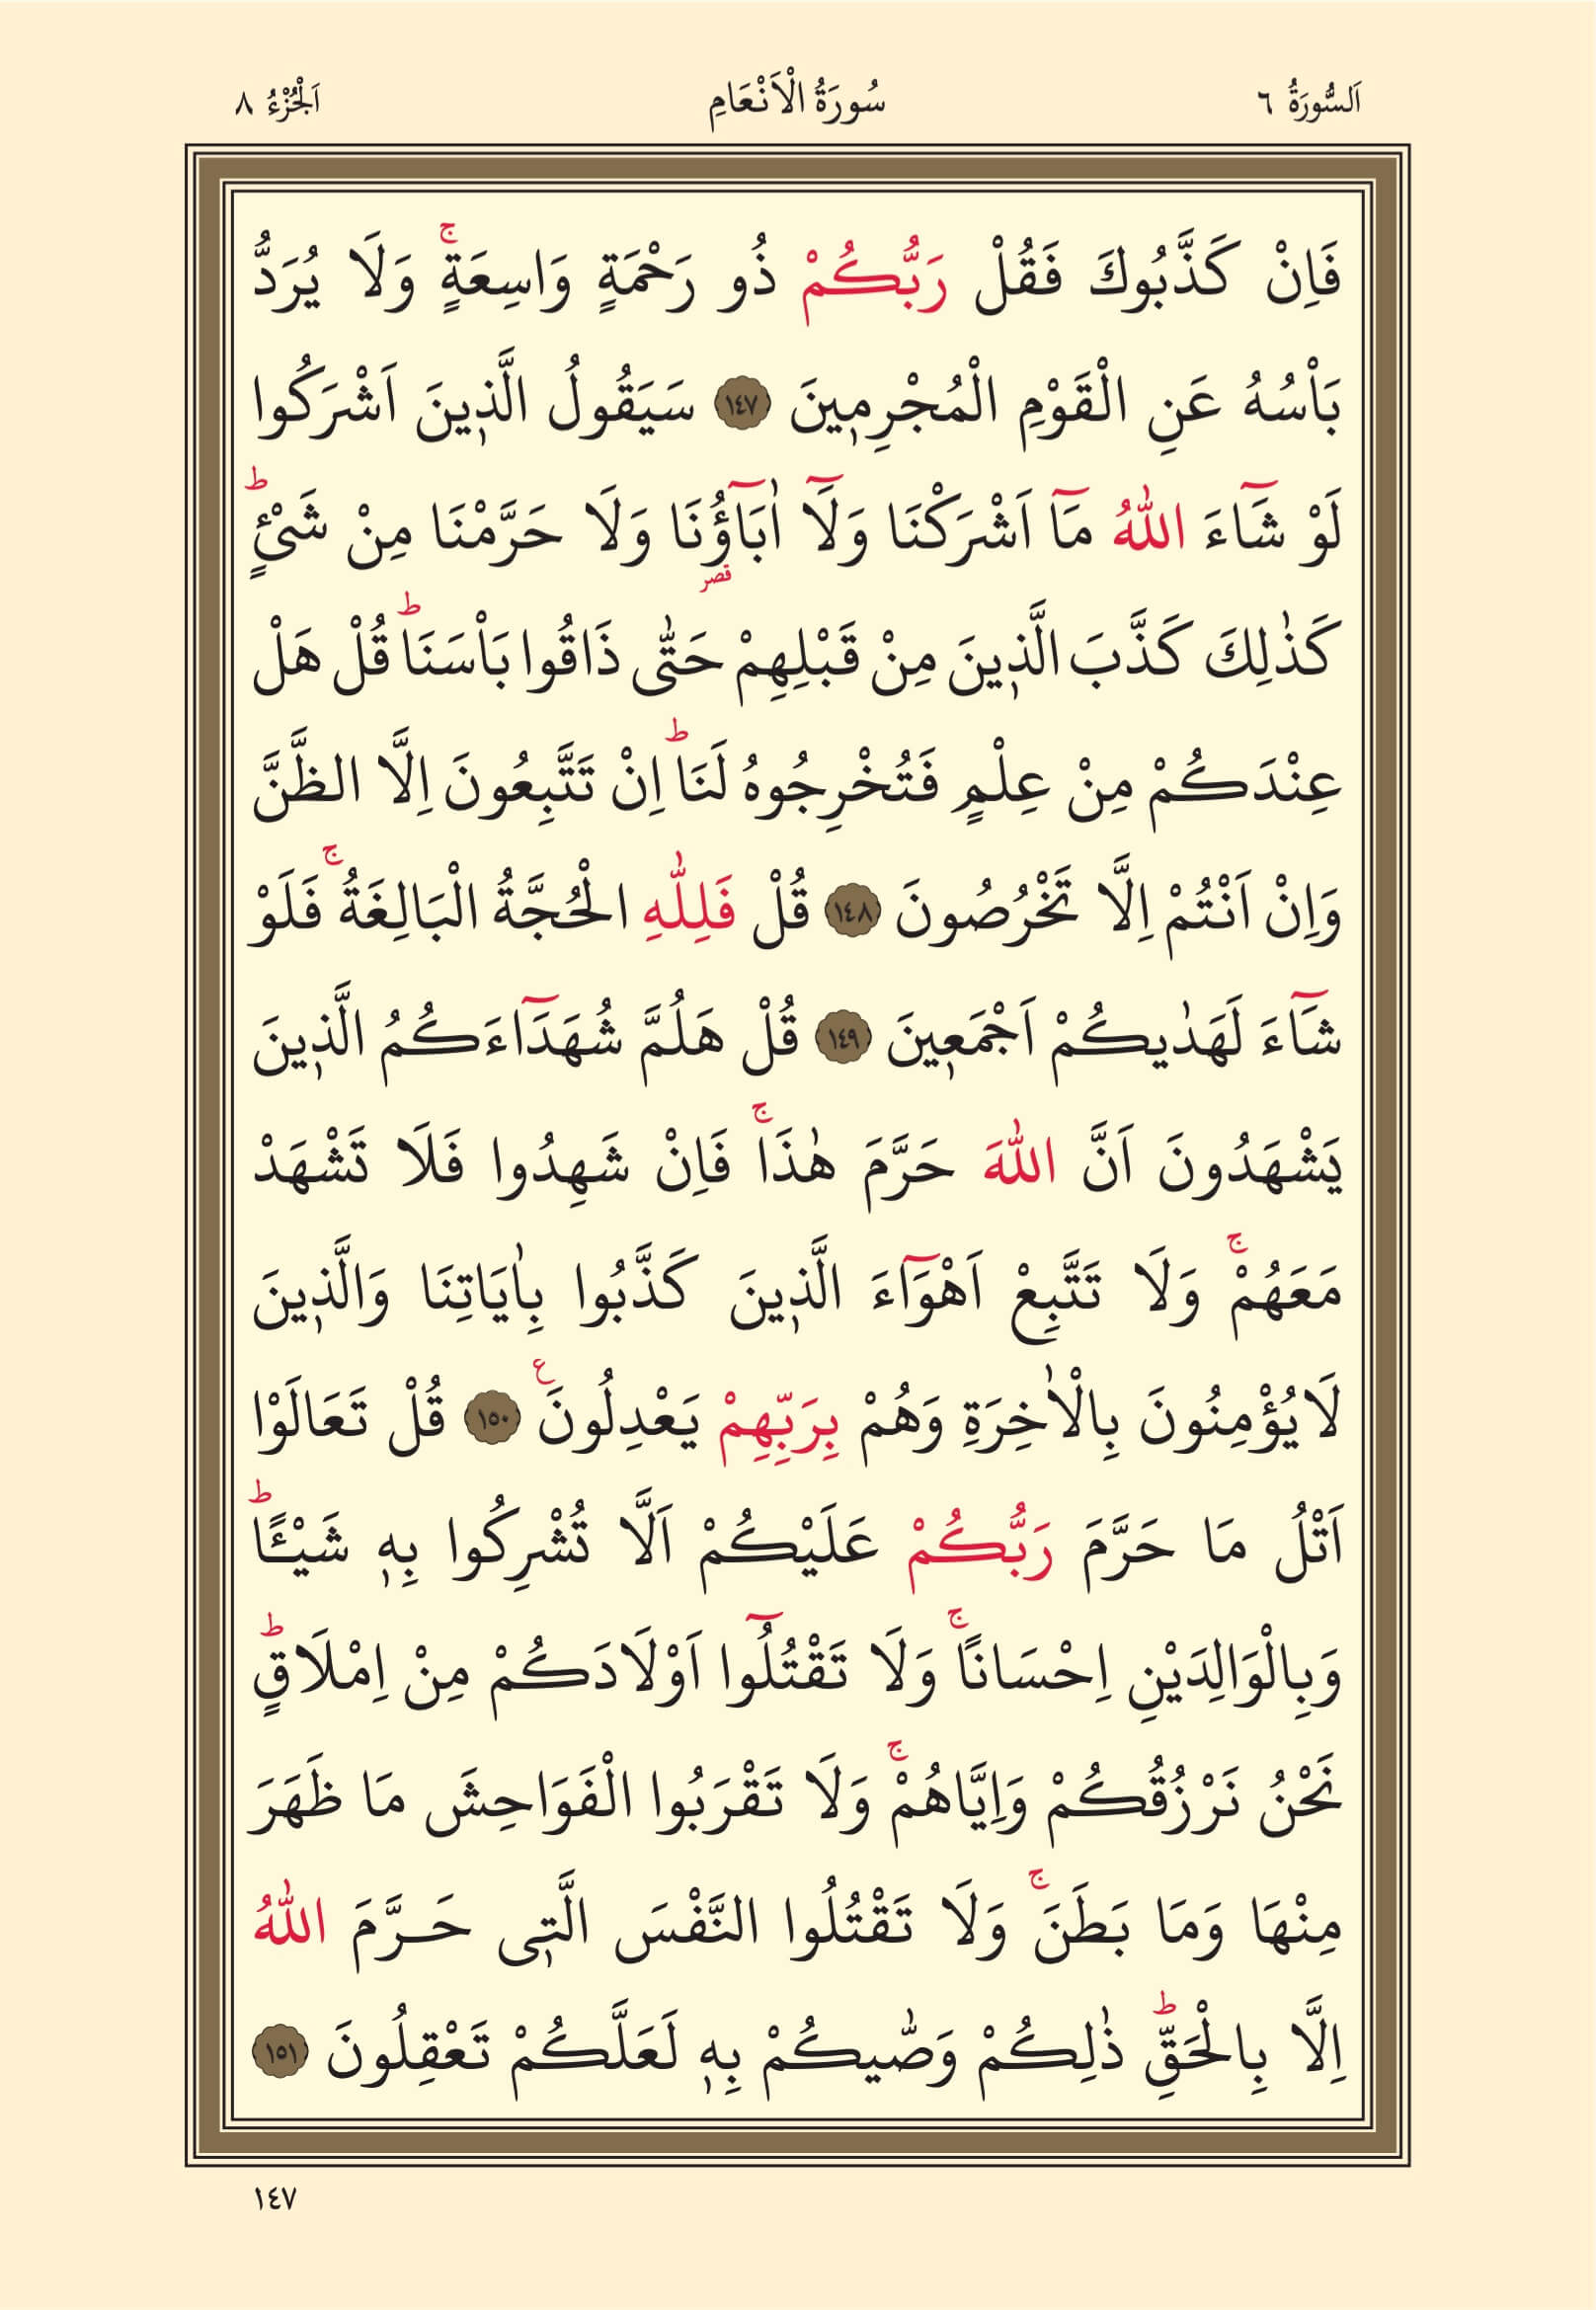 اَلسُّورَةُ ٦ سُورَةُ الْاَنْعَامِ اَلْجُزْءُ ٨
فَاِنْ كَذَّبُوكَ فَقُلْ رَبُّكُمْ ذُو رَحْمَةٍ وَاسِعَةٍۚ وَلَا يُرَدُّ
بَاْسُهُ عَنِ الْقَوْمِ الْمُجْرِم۪ينَ ﴿١٤٧﴾ سَيَقُولُ الَّذ۪ينَ اَشْرَكُوا
لَوْ شَٓاءَ اللّٰهُ مَٓا اَشْرَكْنَا وَلَٓا اٰبَٓاؤُ۬نَا وَلَا حَرَّمْنَا مِنْ شَيْءٍۜ
قصر
كَذٰلِكَ كَذَّبَ الَّذ۪ينَ مِنْ قَبْلِهِمْ حَتّٰى ذَاقُوا بَاْسَنَاۜ قُلْ هَلْ
عِنْدَكُمْ مِنْ عِلْمٍ فَتُخْرِجُوهُ لَنَاۜ اِنْ تَتَّبِعُونَ اِلَّا الظَّنَّ
وَاِنْ اَنْتُمْ اِلَّا تَخْرُصُونَ ﴿١٤٨﴾ قُلْ فَلِلّٰهِ الْحُجَّةُ الْبَالِغَةُۚ فَلَوْ
شَٓاءَ لَهَدٰيكُمْ اَجْمَع۪ينَ ﴿١٤٩﴾ قُلْ هَلُمَّ شُهَدَٓاءَكُمُ الَّذ۪ينَ
يَشْهَدُونَ اَنَّ اللّٰهَ حَرَّمَ هٰذَاۚ فَاِنْ شَهِدُوا فَلَا تَشْهَدْ
مَعَهُمْۚ وَلَا تَتَّبِعْ اَهْوَٓاءَ الَّذ۪ينَ كَذَّبُوا بِاٰيَاتِنَا وَالَّذ۪ينَ
لَا يُؤْمِنُونَ بِالْاٰخِرَةِ وَهُمْ بِرَبِّهِمْ يَعْدِلُونَ۟ ﴿١٥٠﴾ قُلْ تَعَالَوْا
اَتْلُ مَا حَرَّمَ رَبُّكُمْ عَلَيْكُمْ اَلَّا تُشْرِكُوا بِه۪ شَيْـًٔاۜ
وَبِالْوَالِدَيْنِ اِحْسَانًاۚ وَلَا تَقْتُلُٓوا اَوْلَادَكُمْ مِنْ اِمْلَاقٍۜ
نَحْنُ نَرْزُقُكُمْ وَاِيَّاهُمْۚ وَلَا تَقْرَبُوا الْفَوَاحِشَ مَا ظَهَرَ
مِنْهَا وَمَا بَطَنَۚ وَلَا تَقْتُلُوا النَّفْسَ الَّت۪ي حَرَّمَ اللّٰهُ
اِلَّا بِالْحَقِّۜ ذٰلِكُمْ وَصّٰيكُمْ بِه۪ لَعَلَّكُمْ تَعْقِلُونَ ﴿١٥١﴾
١٤٧